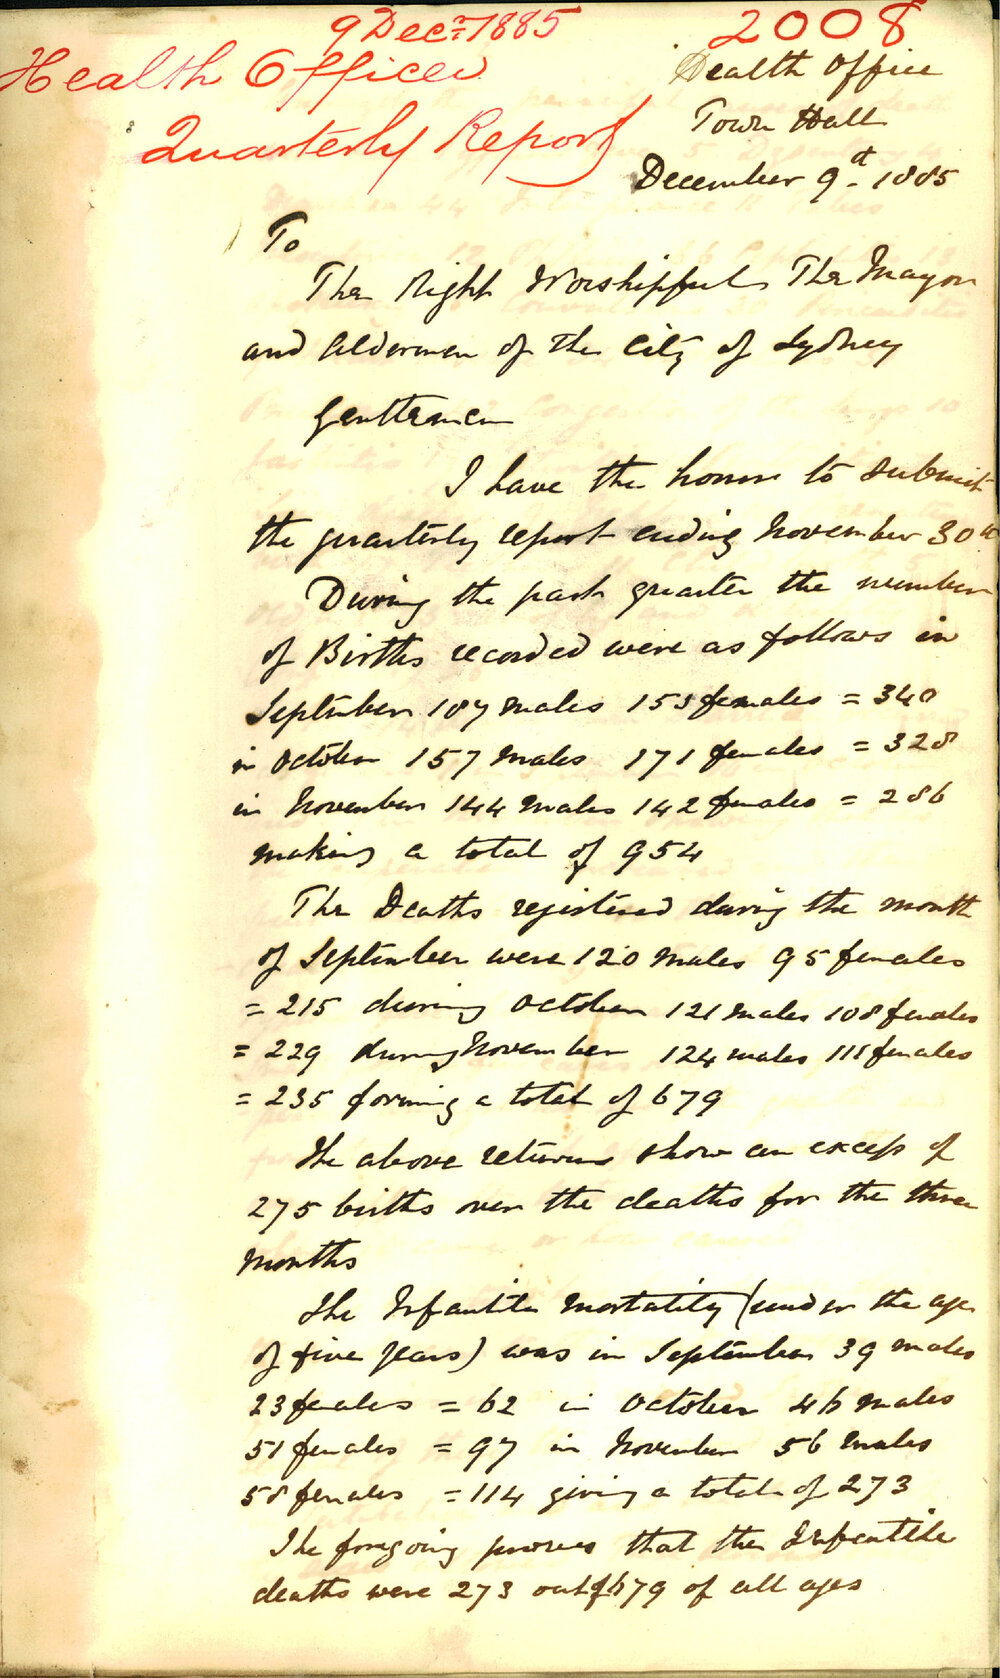 9 Decr. 1885
2008
Health Officer
Quarterly Report
Health Office
Town Hall
December 9th. 1885
To
The Right Worshipful The Mayor
and Aldermen of the City of Sydney
Gentlemen
I have the honor to submit
the quarterly report ending November 30th
During the past quarter the number
of Births recorded were as follows in
September 187 males 153 females = 340
in October 157 males 171 females = 328
in November 144 males 142 females = 286
making a total of 954
The Deaths registered during the month
of September were 120 males 95 females
= 215 during October 121 males 108 females
= 229 during November 124 males 111 females
= 235 forming a total of 679
The above returns show an excess of
275 births over the deaths for the three
months
The Infantile mortality (under the age
of five years) was in September 39 males
23 females = 62 in October 46 males
51 females = 97 in November 56 males
58 females = 114 giving a total of 273
The foregoing proves that the Infantile
deaths were 273 out of 679 of all ages